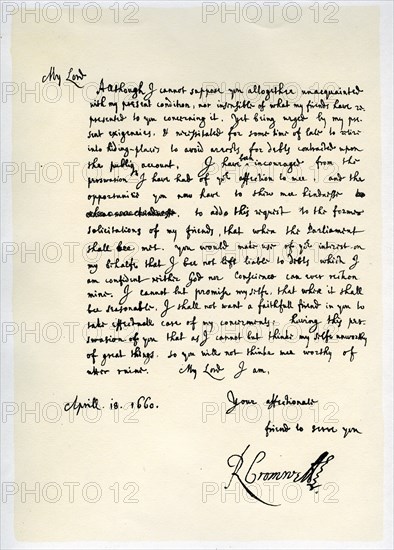 My Lord
Allthough I cannot suppose you alltogether unacquainted
with my present condition, nor insensible of what my friends have re-
presented to you concerning it. Yet being urged by my pre-
sent exigencies, & necessitated for some time of late to retire
into hiding-places to avoid arrests for debts contracted upon
the publiq account, I have been incouraged from the
perswasion I have had of yor affection to mee, and the
opportunities you now have to shew mee kindnesse
to adde this request to the former
solicitations of my friends, that when the Parliament
shall bee met. you would make use of yor interest on
my behalfe that I bee not left liable to debts which I
am confident neither God nor Conscience can ever reckon
mine. I cannot but promise my selfe, that when it shall
bee seasonable, I shall not want a faithfull friend in you to
take effectuall care of my concernments; having this per-
swasion of you that as I cannot but thinke my selfe unworthy
of great things, so you will not thinke mee worthy of
utter ruine. My Lord I am,
Aprill 18. 1660. Your affectionate
friend to serve you
R Cromwell
PHOTO 12